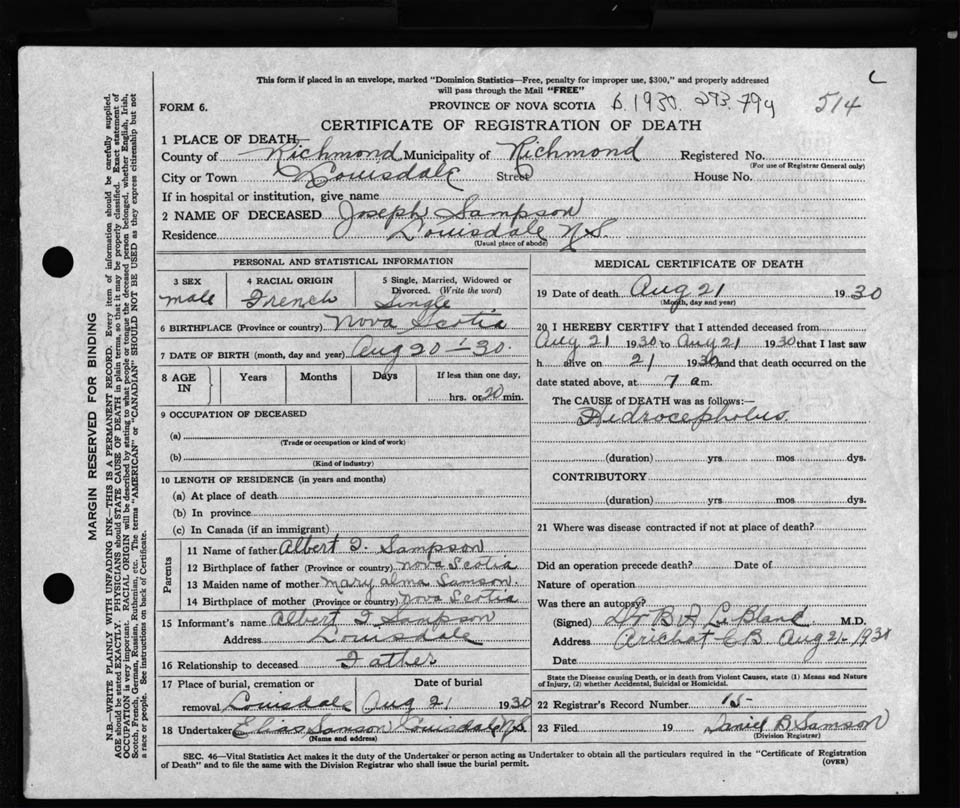 This form if placed in an envelope, marked "Dominion Statistics—Free, penalty for improper use, $300," and properly addressed
will pass through the Mail "FREE"
FORM 6.
PROVINCE OF NOVA SCOTIA
514
CERTIFICATE OF REGISTRATION OF DEATH
1 PLACE OF DEATH—
County of Richmond Municipality of Richmond Registered No.
(For use of Registrar General only)
City or Town Louisdale Street House No.
If in hospital or institution, give name
2 NAME OF DECEASED Joseph Sampson
Residence Louisdale N.S.
(Usual place of abode)
PERSONAL AND STATISTICAL INFORMATION
3 SEX 4 RACIAL ORIGIN 5 Single, Married, Widowed or
Divorced. (Write the word)
male French Single
6 BIRTHPLACE (Province or country) Nova Scotia
7 DATE OF BIRTH (month, day and year) Aug 20 - 30.
8 AGE IN Years Months Days If less than one day,
hrs. or 20 min.
9 OCCUPATION OF DECEASED
(a)
(Trade or occupation or kind of work)
(b)
(Kind of industry)
10 LENGTH OF RESIDENCE (in years and months)
(a) At place of death
(b) In province
(c) In Canada (if an immigrant)
Parents
11 Name of father Albert I. Sampson
12 Birthplace of father (Province or country) Nova Scotia
13 Maiden name of mother Mary Alma Samson.
14 Birthplace of mother (Province or country) Nova Scotia
15 Informant's name Albert I Sampson
Address Louisdale
16 Relationship to deceased Father
17 Place of burial, cremation or Date of burial
removal Louisdale Aug 21 1930
18 Undertaker Elias Samson Louisdale N.S.
(Name and address)
MEDICAL CERTIFICATE OF DEATH
19 Date of death Aug 21 1930
(Month, day and year)
20 I HEREBY CERTIFY that I attended deceased from
Aug 21 1930 to Aug 21 1930 that I last saw
h alive on 21 1930 and that death occurred on the
date stated above, at 7 a m.
The CAUSE of DEATH was as follows:—
Hidrocepholus.
(duration) yrs. mos. dys.
CONTRIBUTORY
(duration) yrs. mos. dys.
21 Where was disease contracted if not at place of death?
Did an operation precede death? Date of
Nature of operation
Was there an autopsy?
(Signed) Dr B A LeBlanc M.D.
Address Arichat C.B. Aug 21-1930
Date
State the Disease causing Death, or in death from Violent Causes, state (1) Means and Nature
of Injury, (2) whether Accidental, Suicidal or Homicidal.
22 Registrar's Record Number 15
23 Filed 19 Daniel B Samson
(Division Registrar)
SEC. 46—Vital Statistics Act makes it the duty of the Undertaker or person acting as Undertaker to obtain all the particulars required in the "Certificate of Registration
of Death" and to file the same with the Division Registrar who shall issue the burial permit.
(OVER)
MARGIN RESERVED FOR BINDING
N.B.—WRITE PLAINLY WITH UNFADING INK—THIS IS A PERMANENT RECORD. Every item of information should be carefully supplied.
AGE should be stated EXACTLY. PHYSICIANS should STATE CAUSE OF DEATH in plain terms, so that it may be properly classified. Exact statement of
OCCUPATION is very important. RACIAL ORIGIN will be described by stating to what people or tongue the deceased person belonged, whether English, Irish,
Scotch, French, German, Russian, Ruthenian, etc. The terms "AMERICAN" or "CANADIAN" SHOULD NOT BE USED as they express citizenship but not
a race or people. See instructions on back of Certificate.